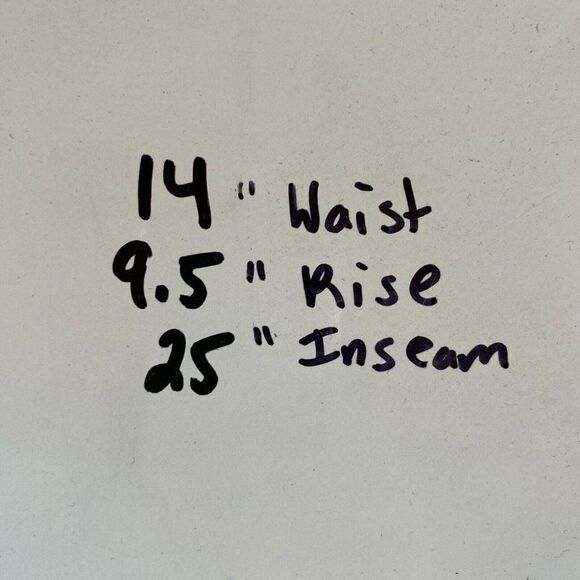 14" Waist
9.5" Rise
25" Inseam